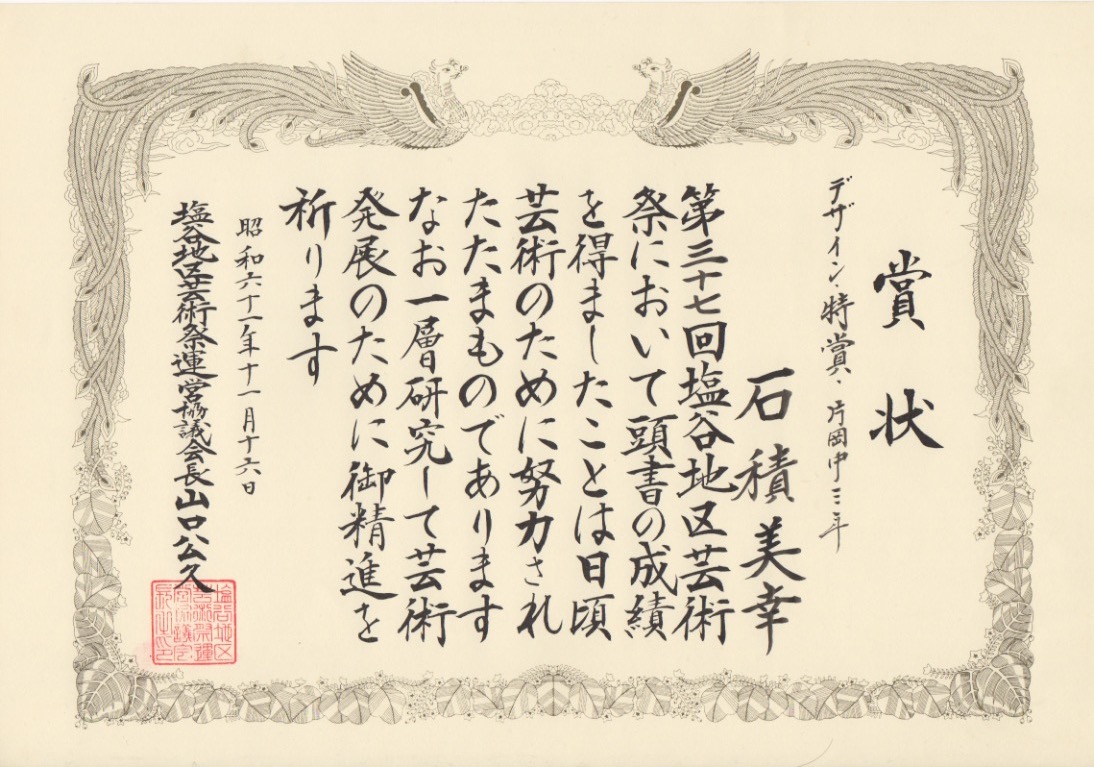 賞状
デザイン・特賞・片岡中三年
石積美幸
第三十七回塩谷地区芸術
祭において頭書の成績
を得ましたことは日頃
芸術のために努力され
たたまものであります
なお一層研究して芸術
発展のために御精進を
祈ります
昭和六十一年十一月十六日
塩谷地区芸術祭運営協議会長山口公久